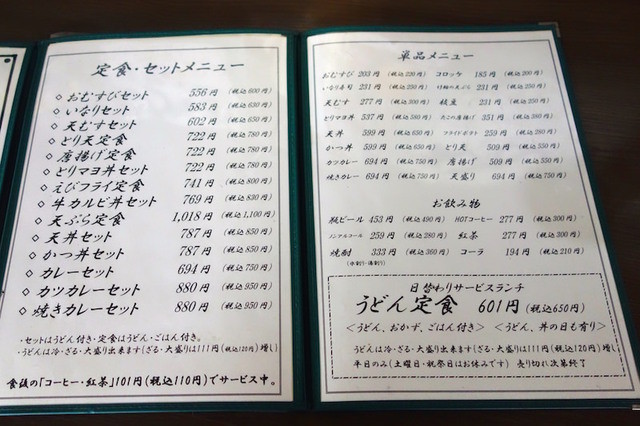 定食・セットメニュー
◇ おむすびセット 556円 (税込600円)
◇ いなりセット 583円 (税込630円)
◇ 天むすセット 602円 (税込650円)
◇ とり天定食 722円 (税込780円)
◇ 唐揚げ定食 722円 (税込780円)
◇ とりマヨ丼セット 722円 (税込780円)
◇ えびフライ定食 741円 (税込800円)
◇ 牛カルビ丼セット 769円 (税込830円)
◇ 天ぷら定食 1,018円 (税込1,100円)
◇ 天丼セット 787円 (税込850円)
◇ かつ丼セット 787円 (税込850円)
◇ カレーセット 694円 (税込750円)
◇ カツカレーセット 880円 (税込950円)
◇ 焼きカレーセット 880円 (税込950円)
・セットはうどん付き・定食はうどん・ごはん付き。
・うどんは冷・ざる・大盛り出来ます(ざる・大盛りは111円(税込120円)増し
食後の「コーヒー・紅茶」101円(税込110円)でサービス中。
単品メニュー
おむすび 203円 (税込220円) コロッケ 185円 (税込200円)
いなり寿司 231円 (税込250円) 231円 (税込250円)
天むす 277円 (税込300円) 枝豆 231円 (税込250円)
とりマヨ丼 537円 (税込580円) たこの唐揚げ 259円 (税込280円)
天丼 599円 (税込650円) フライドポテト 259円 (税込280円)
かつ丼 599円 (税込650円) とり天 509円 (税込550円)
カツカレー 694円 (税込750円) 唐揚げ 509円 (税込550円)
焼きカレー 694円 (税込750円) 天盛り 694円 (税込750円)
お飲み物
瓶ビール 453円 (税込490円) HOTコーヒー 277円 (税込300円)
ノンアルコール 259円 (税込280円) 紅茶 277円 (税込300円)
焼酎 333円 (税込360円) コーラ 194円 (税込210円)
(水割り・湯割り)
日替わりサービスランチ
うどん定食 601円 (税込650円)
<うどん、おかず、ごはん付き> <うどん、丼の日も有り>
うどんは冷・ざる・大盛り出来ます(ざる・大盛りは111円(税込120円)増し
平日のみ(土曜日・祝祭日はお休みです) 売り切れ次第終了